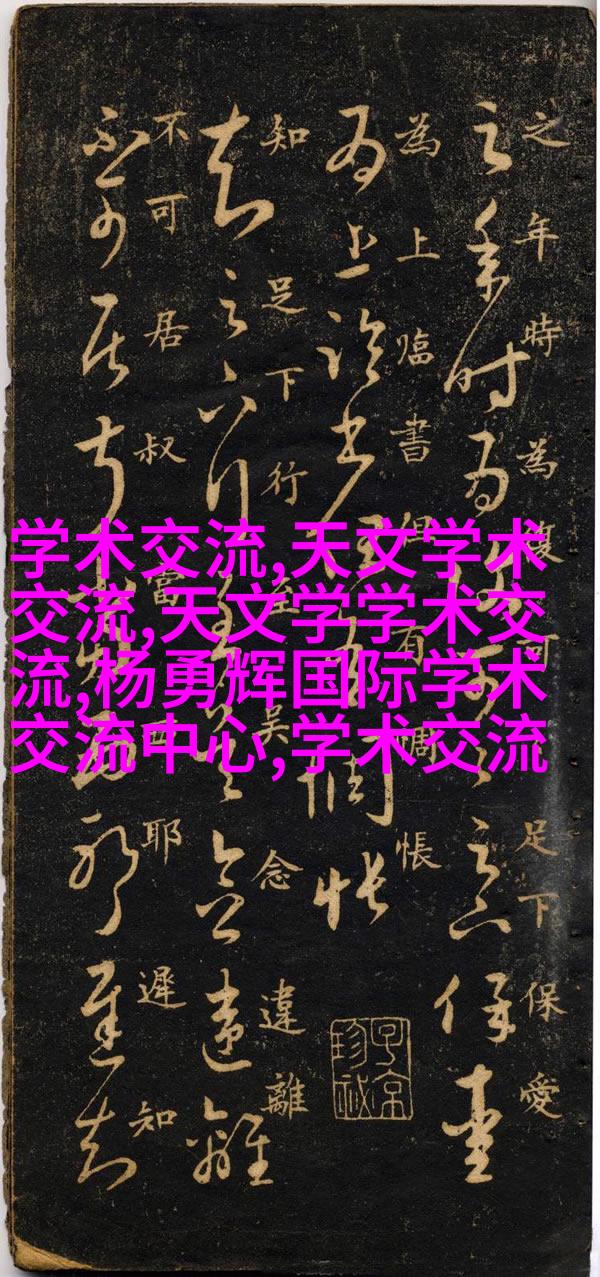 之年時為復可足下保愛
為上臨書但有惆悵
知足下行至吳念違離
不可居叔當西耶遲知
子京珍秘
学术交流,天文学术
交流,天文学学术交
流,杨勇辉国际学术
交流中心,学术交流